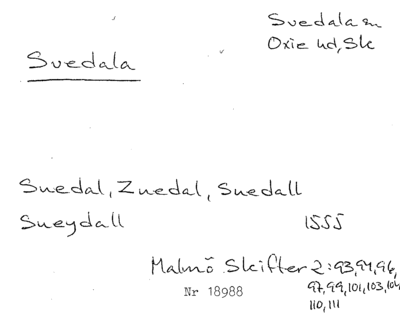 Svedala sn
Oxie hd, Sk
Svedala
Suedal, Zuedal, Suedall
Sueydall 1555
Malmö Skifter 2:93,94,96,
97,99,101,103,104,
110,111
Nr 18988